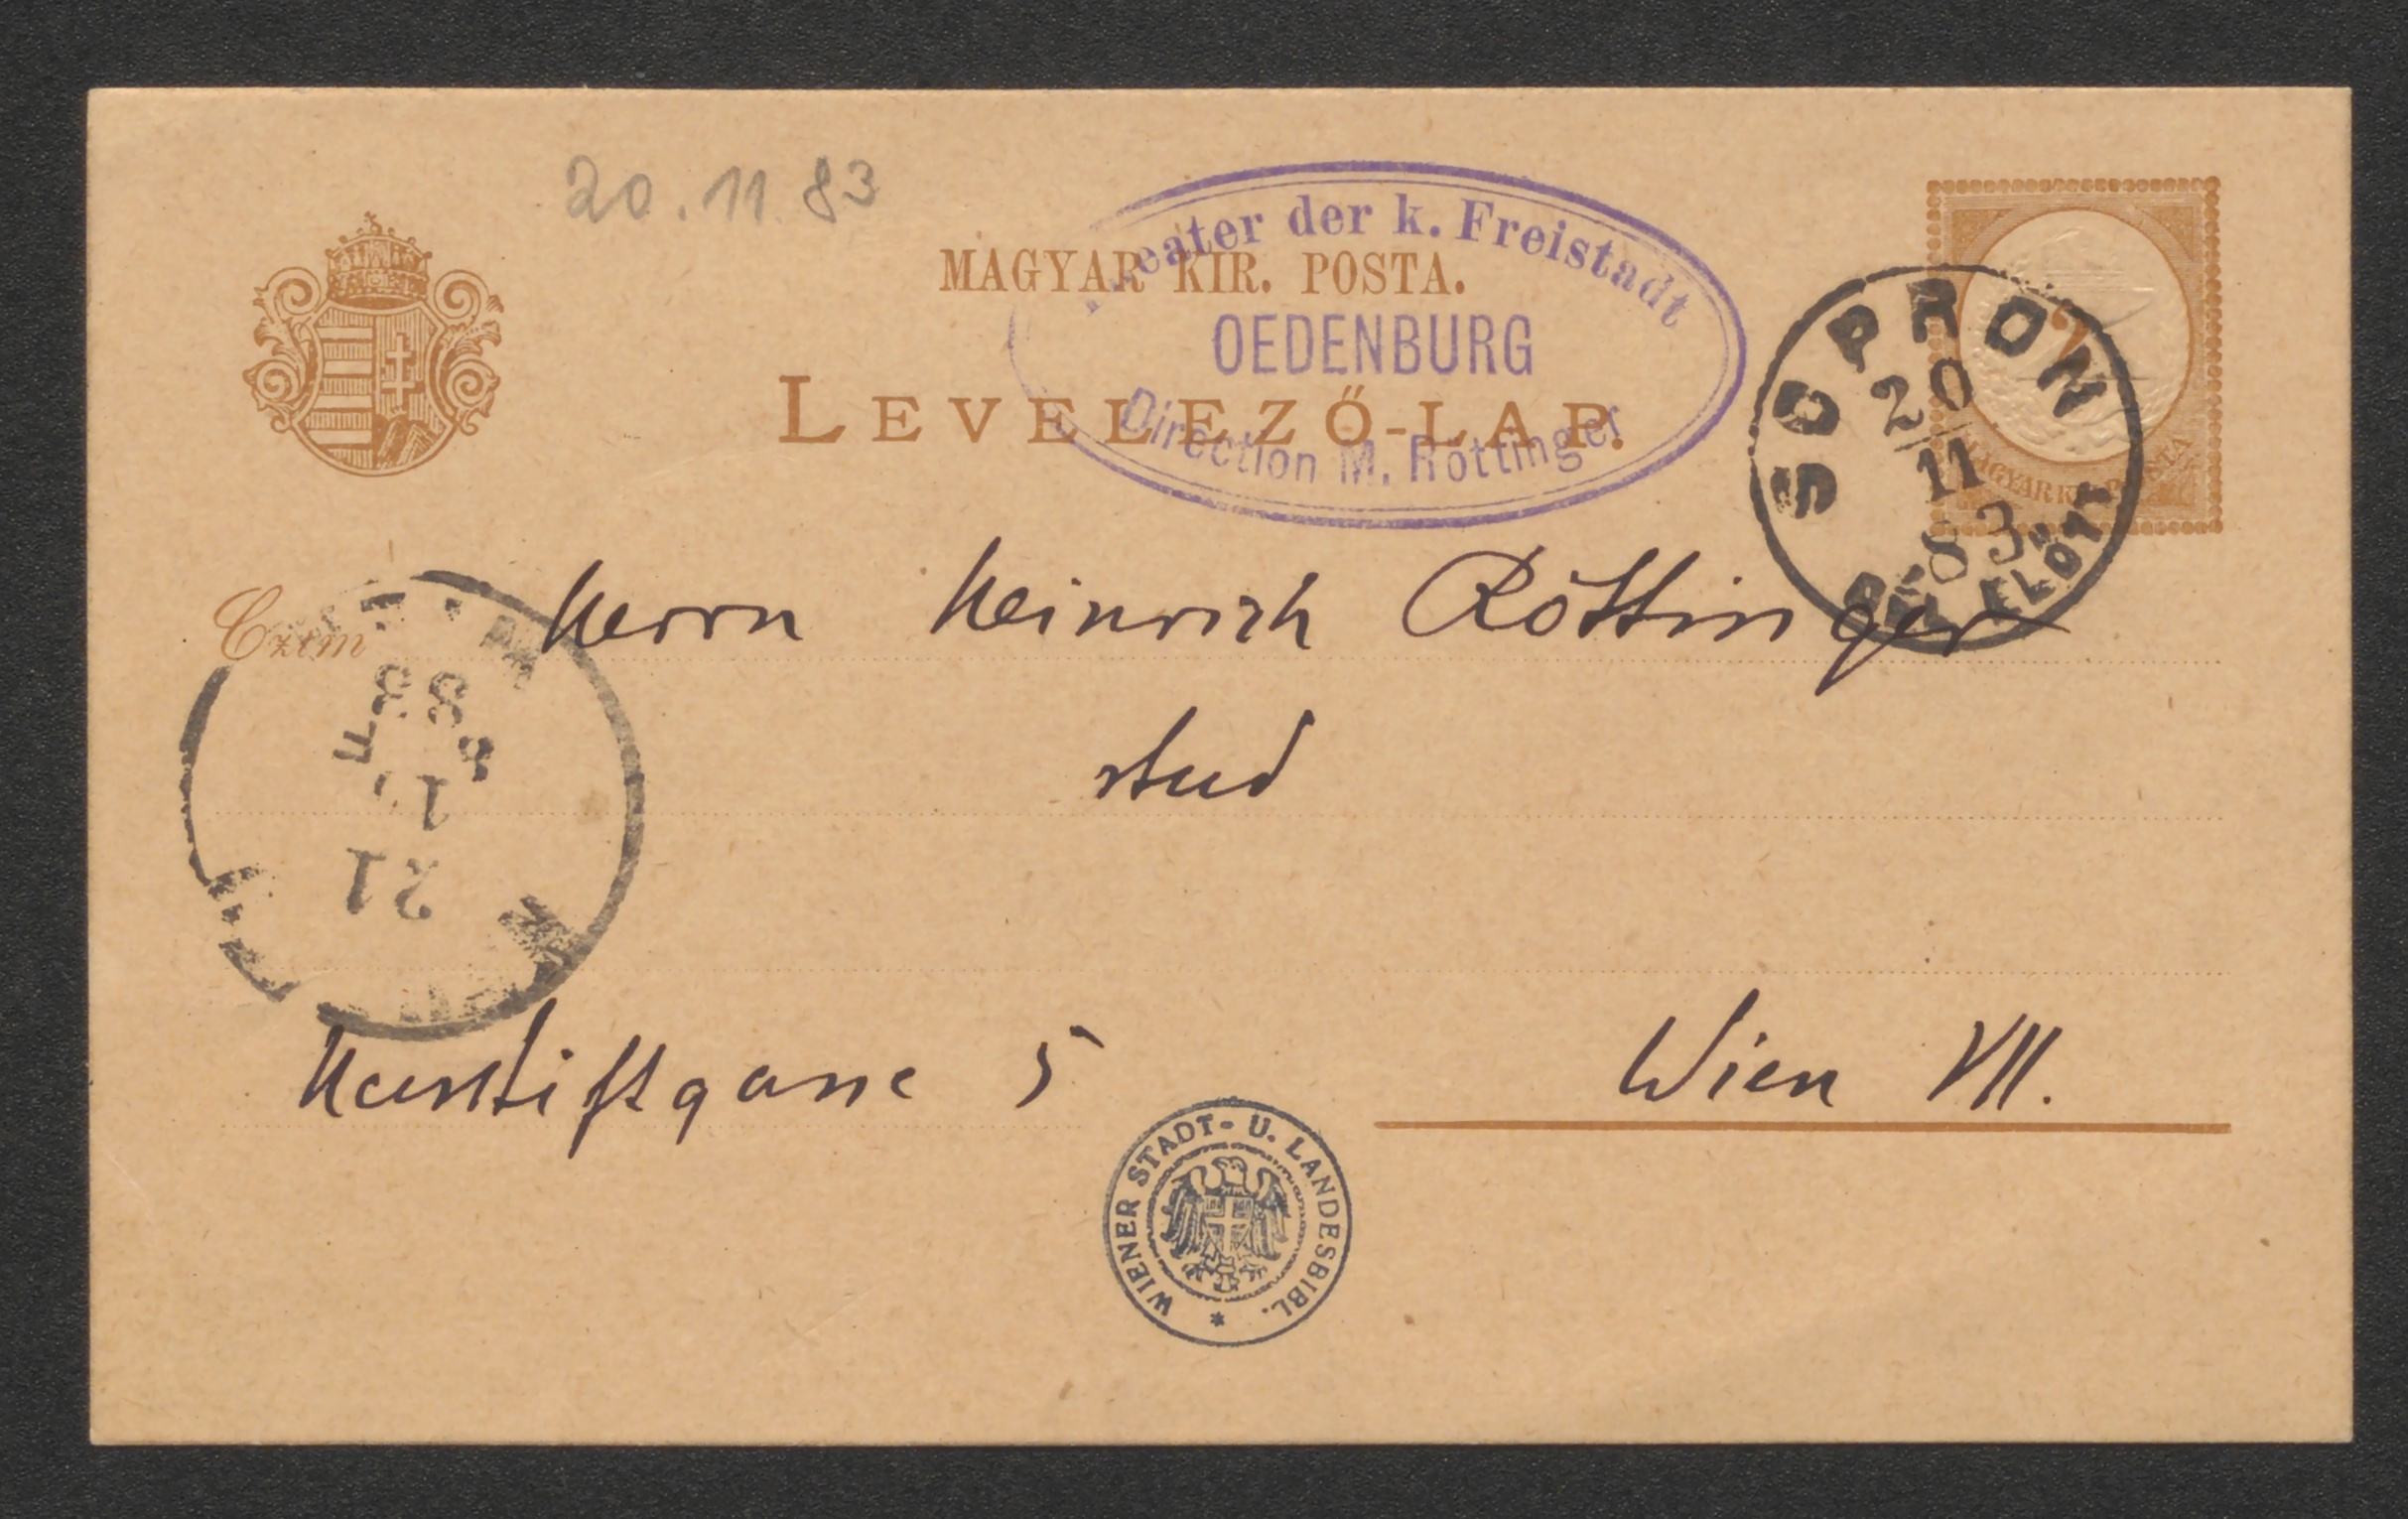 20.11.83
MAGYAR KIR. POSTA.
LEVELEZŐ-LAP.
Theater der k. Freistadt
OEDENBURG
Direction M. Röttinger
SOPRON
20
11
83
DÉLELŐTT
MAGYAR KIR. POSTA
Czím
Herrn Heinrich Röttinger
stud
21
83
Karistiftgasse 5
Wien VII.
WIENER STADT- U. LANDESBIBL.